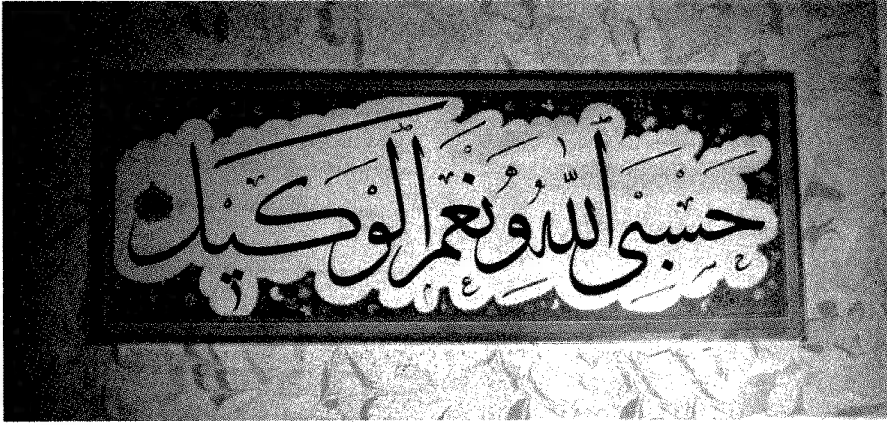 حَسْبِيَ ٱللَّهُ وَنِعْمَ ٱلْوَكِيلُ